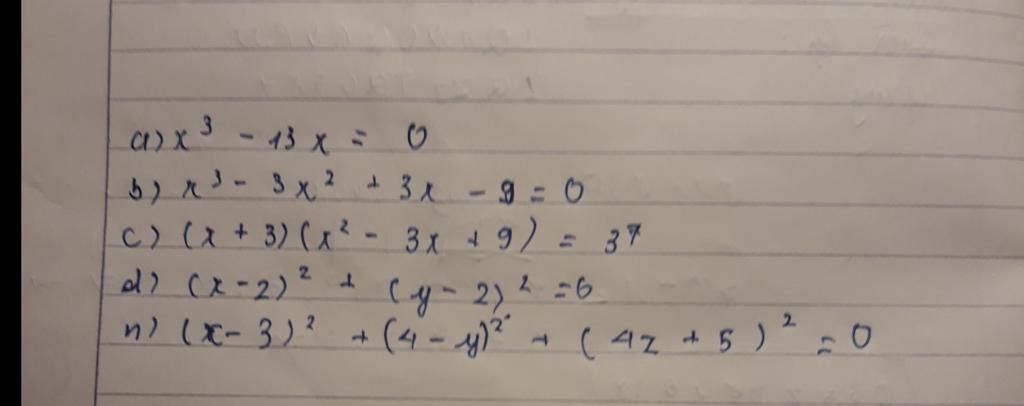 a) x³ - 13x = 0
b) x³ - 3x² + 3x - 9 = 0
c) (x + 3)(x² - 3x + 9) = 37
d) (x-2)² + (y-2)² = 6
n) (x-3)² + (4-y)² + (4z + 5)² = 0